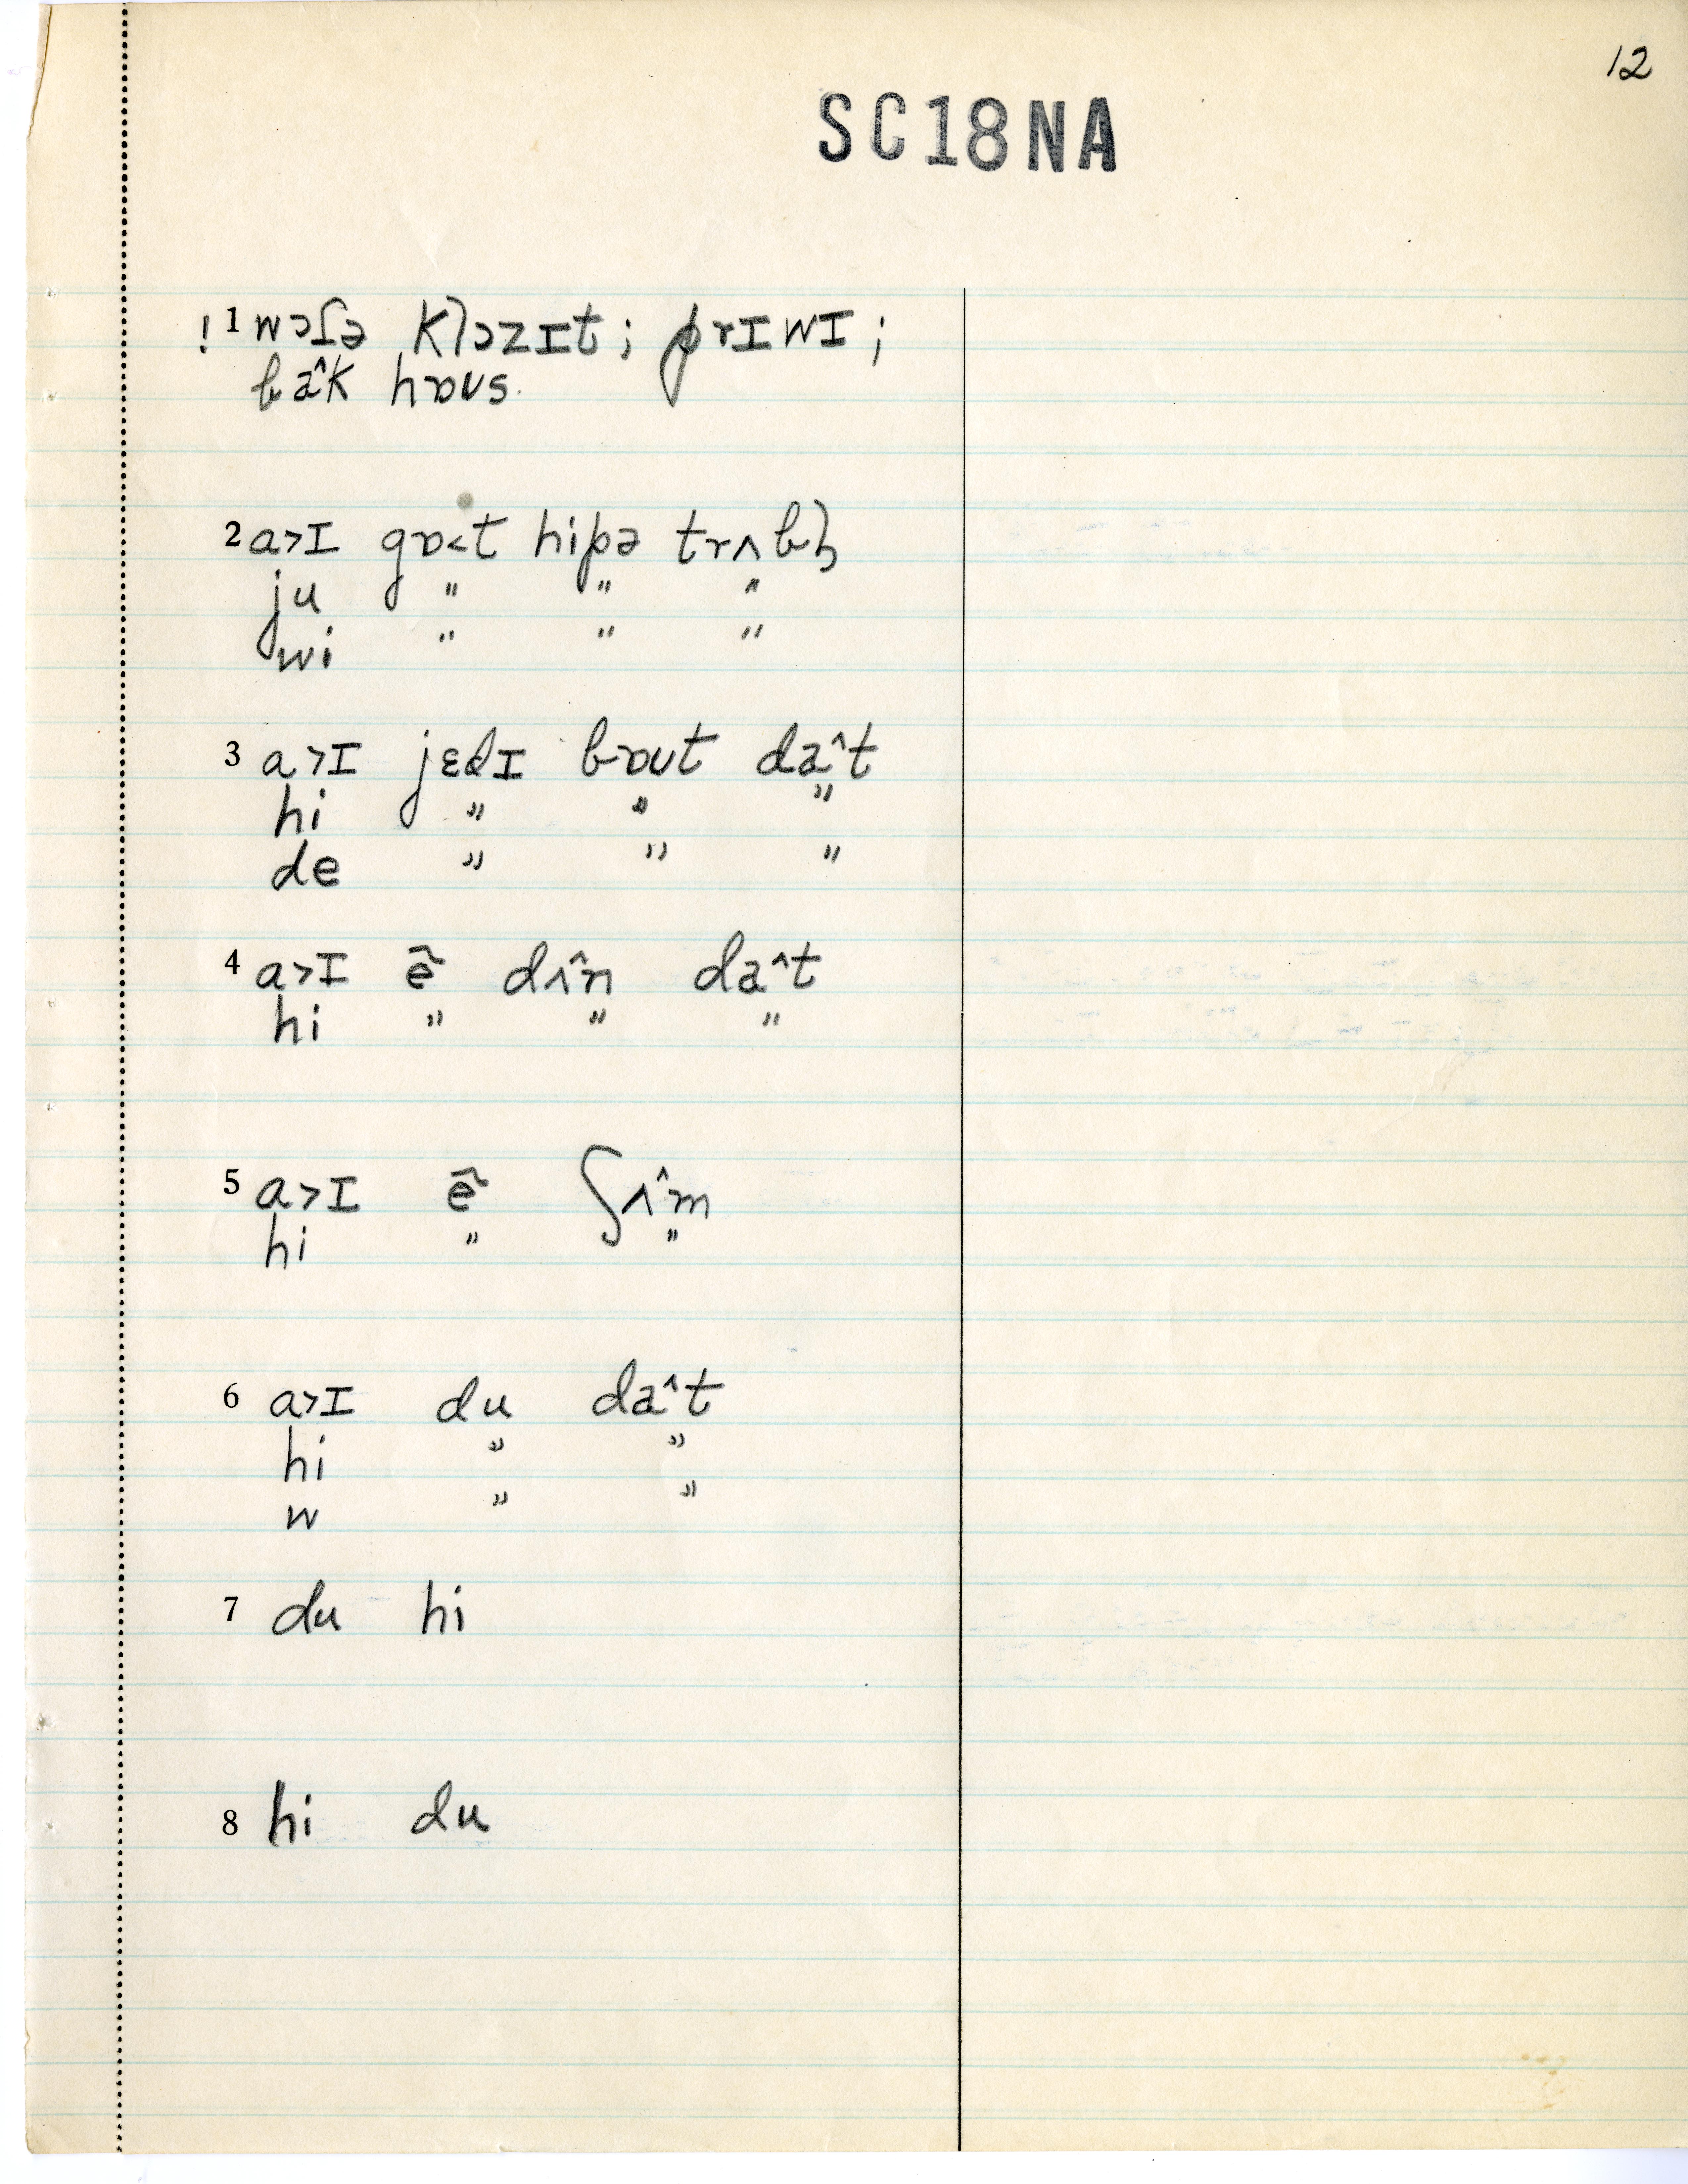 12
SC18NA
! 1 wɔʃə klɔzɪt ; ɸrɪwɪ ;
ba^k hɒʊs.
2 a>ɪ gɒ<t hipə trʌbl̩
ju " " "
wi " " "
3 a>ɪ jɛdɪ bɒʊt da^t
hi " " "
de " " "
4 a>ɪ ẽ dʌ^n da^t
hi " " "
5 a>ɪ ẽ ʃʌ^m
hi " "
6 a>ɪ du da^t
hi " "
w " "
7 du hi
8 hi du